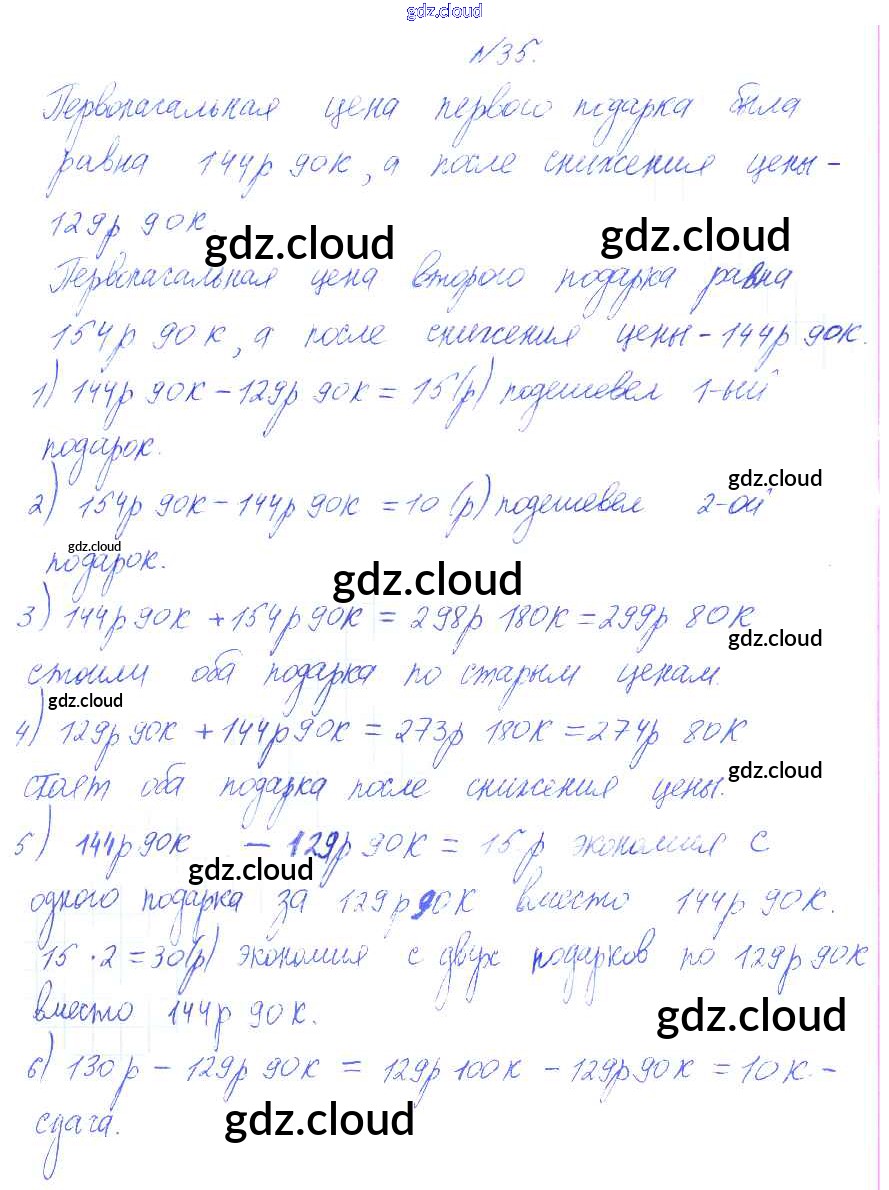 gdz.cloud
№35.
Первоначальная цена первого подарка была
равна 144р 90к, а после снижения цены -
129р 90к.
gdz.cloud gdz.cloud
Первоначальная цена второго подарка равна
154р 90к, а после снижения цены - 144р 90к.
1) 144р 90к - 129р 90к = 15 (р) подешевел 1-ый
подарок.
gdz.cloud
2) 154р 90к - 144р 90к = 10 (р) подешевел 2-ой
gdz.cloud
подарок.
gdz.cloud
3) 144р 90к + 154р 90к = 298р 180к = 299р 80к
gdz.cloud
стоили оба подарка по старым ценам.
gdz.cloud
4) 129р 90к + 144р 90к = 273р 180к = 274р 80к
gdz.cloud
стоят оба подарка после снижения цены.
5) 144р 90к - 129р 90к = 15р экономия с
gdz.cloud
одного подарка за 129р 90к вместо 144р 90к.
15 · 2 = 30(р) экономия с двух подарков по 129р 90к
вместо 144р 90к.
gdz.cloud
6) 130р - 129р 90к = 129р 100к - 129р 90к = 10к -
сдача.
gdz.cloud